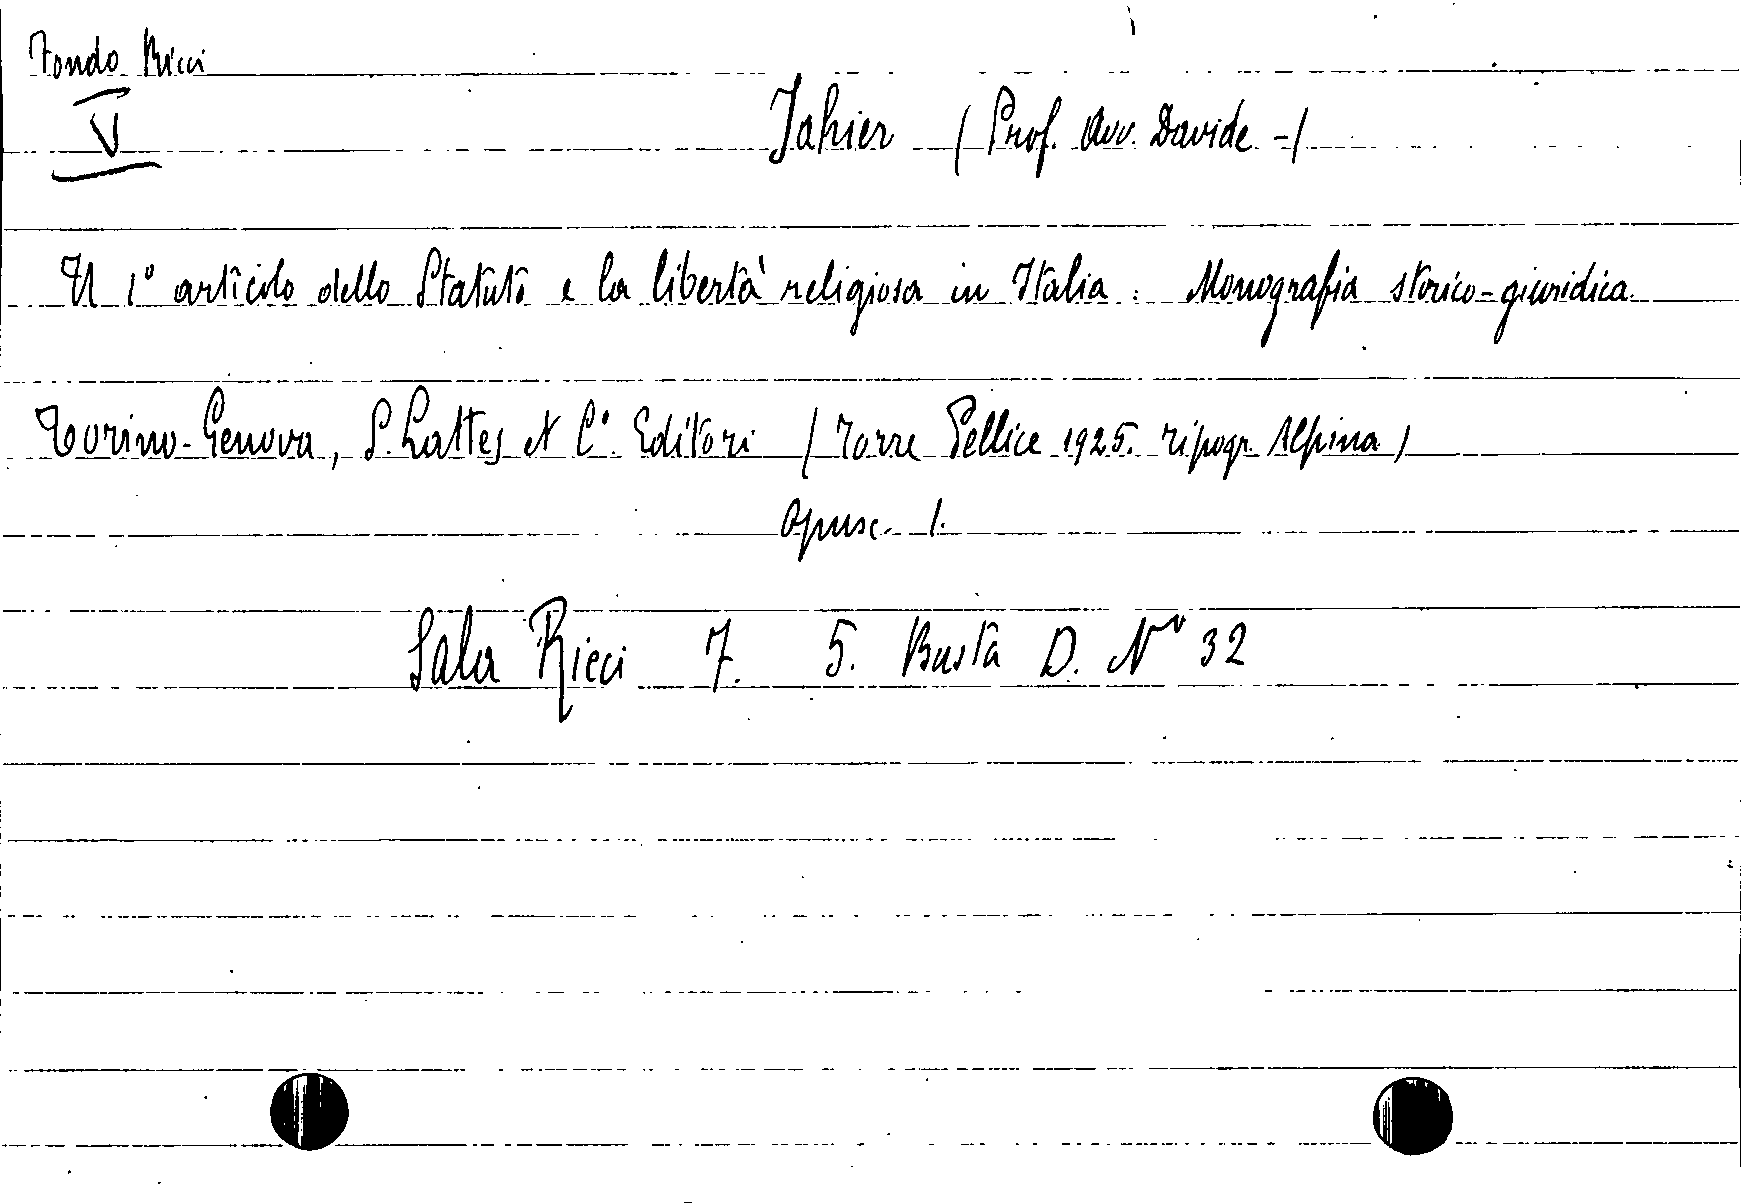 Fondo Ricci
V
Jahier (Prof. Avv. Davide -)
Il 1° articolo dello Statuto e la libertà religiosa in Italia: Monografia storico-giuridica.
Torino-Genova, S. Lattes et C°. Editori (Torre Pellice 1925. Tipogr. Alpina)
Opusc. 1.
Sala Ricci 7. 5. Busta D. N° 32